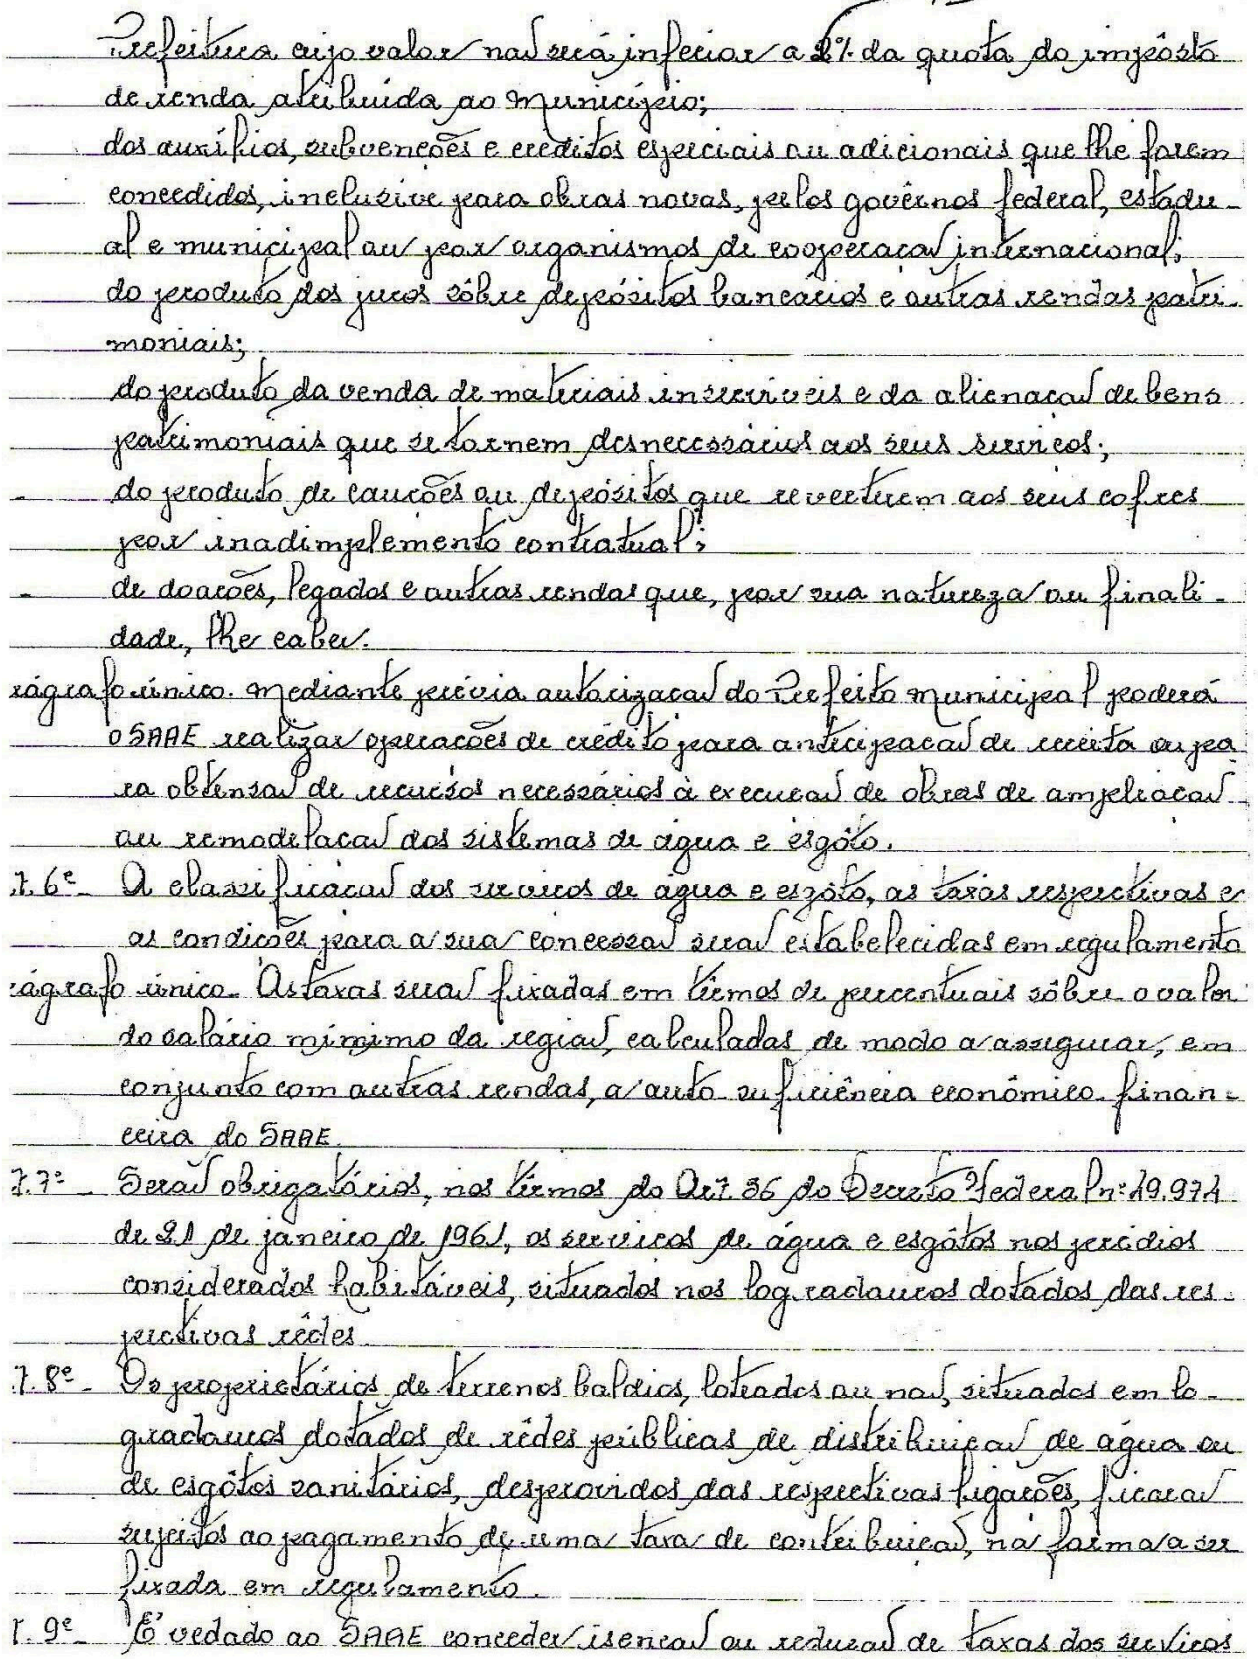 Prefeitura cujo valor não será inferior a 2% da quota do impôsto
de renda atribuida ao Município;
dos auxílios, subvenções e créditos especiais ou adicionais que lhe forem
concedidos, inclusive para obras novas, pelos govêrnos federal, estadu-
al e municipal ou por organismos de cooperação internacional;
do produto dos juros sôbre depósitos bancários e outras rendas patri-
moniais;
do produto da venda de materiais inservíveis e da alienação de bens
patrimoniais que se tornem desnecessários aos seus serviços;
- do produto de cauções ou depósitos que reverterem aos seus cofres
por inadimplemento contratual;
- de doações, legados e outras rendas que, por sua natureza ou finali-
dade, lhe caber.
rágrafo único. Mediante prévia autorização do Prefeito Municipal poderá
o SAAE realizar operações de crédito para antecipação de receita ou pa
ra obtensão de recursos necessários à execução de obras de ampliação
ou remodelação dos sistemas de água e esgôto.
t. 6º - A classificação dos serviços de água e esgôto, as taxas respectivas e
as condições para a sua concessão serão estabelecidas em regulamento
rágrafo único - As taxas serão fixadas em têrmos de percentuais sôbre o valor
do salário mínimo da região, calculadas de modo a assegurar, em
conjunto com outras rendas, a auto-suficiência econômico-finan-
ceira do SAAE.
t. 7º - Serão obrigatórios, nos têrmos do Art. 36 do Decreto Federal nº 49.974
de 21 de janeiro de 1961, os serviços de água e esgôtos nos prédios
considerados habitáveis, situados nos logradouros dotados das res-
pectivas rêdes.
t. 8º - Os proprietários de terrenos baldios, loteados ou não, situados em lo-
gradouros dotados de rêdes públicas de distribuição de água ou
de esgôtos sanitários, desprovidos das respectivas ligações, ficarão
sujeitos ao pagamento de uma taxa de contribuição, na forma a ser
fixada em regulamento.
t. 9º - É vedado ao SAAE conceder isenção ou redução de taxas dos serviços